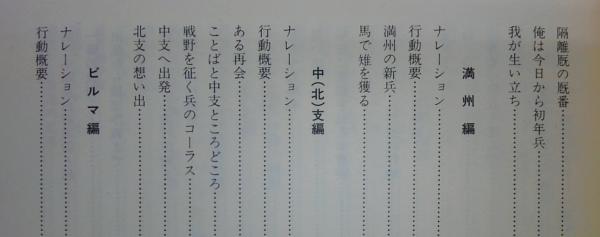 隔離厩の厩番……………
俺は今日から初年兵……………
我が生い立ち……………
満州編
ナレーション……………
行動概要……………
満州の新兵……………
馬で雉を獲る……………
中(北)支編
ナレーション……………
行動概要……………
ある再会……………
ことばと中支ところどころ……………
戦野を征く兵のコーラス……………
中支へ出発……………
北支の想い出……………
ビルマ編
ナレーション……………
行動概要……………